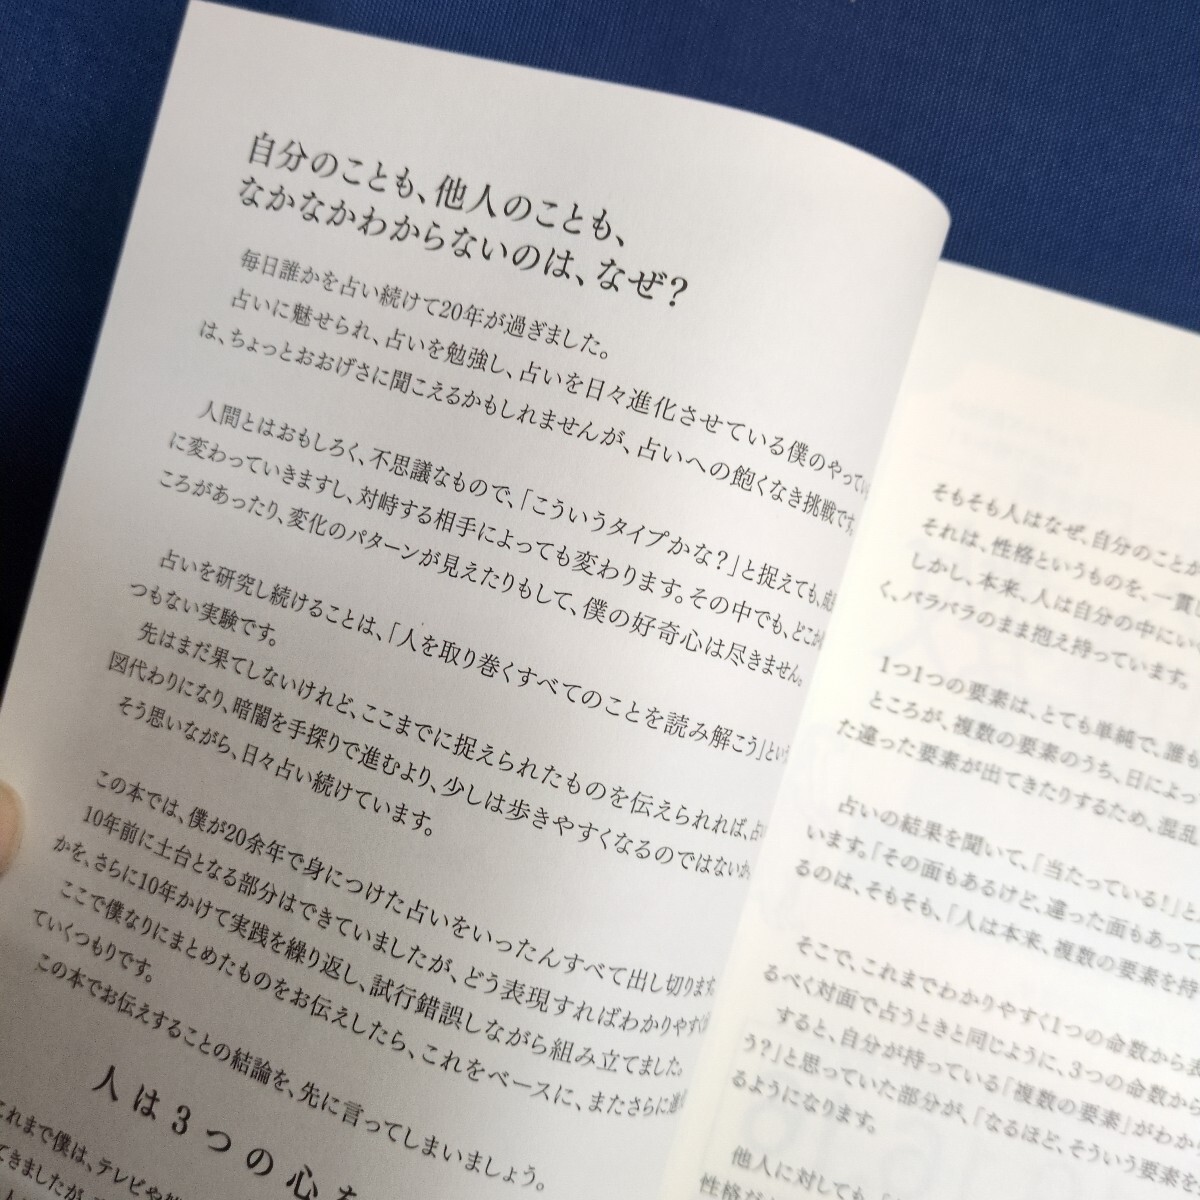 自分のことも、他人のことも、
なかなかわからないのは、なぜ？
毎日誰かを占い続けて20年が過ぎました。
占いに魅せられ、占いを勉強し、占いを日々進化させている僕のやってい
は、ちょっとおおげさに聞こえるかもしれませんが、占いへの飽くなき挑戦です。
人間とはおもしろく、不思議なもので、「こういうタイプかな？」と捉えても、
に変わっていきますし、対峙する相手によっても変わります。その中でも、どこか
ころがあったり、変化のパターンが見えたりもして、僕の好奇心は尽きません。
占いを研究し続けることは、「人を取り巻くすべてのことを読み解こう」とい
つもない実験です。
先はまだ果てしないけれど、ここまでに捉えられたものを伝えられれば、
図代わりになり、暗闇を手探りで進むより、少しは歩きやすくなるのではないか
そう思いながら、日々占い続けています。
この本では、僕が20余年で身につけた占いをいったんすべて出し切ります。
10年前に土台となる部分はできていましたが、どう表現すればわかりやすく
かを、さらに10年かけて実践を繰り返し、試行錯誤しながら組み立てました。
ここで僕なりにまとめたものをお伝えしたら、これをベースに、またさらに進
ていくつもりです。
この本でお伝えすることの結論を、先に言ってしまいましょう。
人は3つの心を
これまで僕は、テレビや
てきましたが、
そもそも人はなぜ、自分のことが
それは、性格というものを、一貫
しかし、本来、人は自分の中にい
く、バラバラのまま抱え持っています。
1つ1つの要素は、とても単純で、誰も
ところが、複数の要素のうち、日によっ
た違った要素が出てきたりするため、混乱
占いの結果を聞いて、「当たっている！」と
います。「その面もあるけど、違った面もあって
るのは、そもそも、「人は本来、複数の要素を持
そこで、これまでわかりやすく1つの命数から
るべく対面で占うときと同じように、3つの命数から
すると、自分が持っている「複数の要素」がわか
う？」と思っていた部分が、「なるほど、そういう要素を
るようになります。
他人に対しても、
性格が